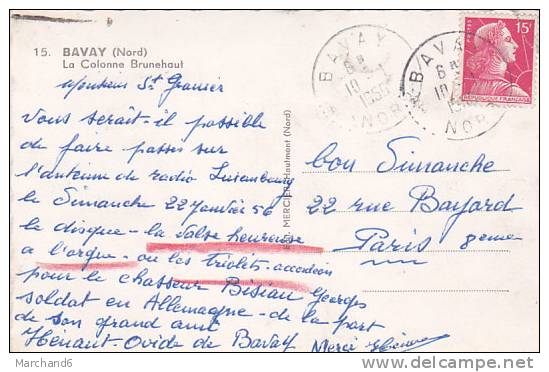 15. BAVAY (Nord)
La Colonne Brunehaut
Monsieur St Granier
Vous serait-il possible
de faire passer sur
l'antenne de radio Luxembourg
le Dimanche 22 Janvier 56
le disque - la Valse heureuse
a l'orgue - ou les triolets - accordéon
pour le chasseur Bisiau Georges
soldat en Allemagne - de la part
de son grand ami
Hénaut - Ovide de Bavay
Merci
MERCIER Hautmont (Nord)
BAVAY
10-1
1956
NORD
BAVAY
10-1
NORD
15F
POSTES
REPUBLIQUE FRANÇAISE
bon Dimanche
22 rue Bayard
Paris 8eme
Marchand6
www.delcampe.net